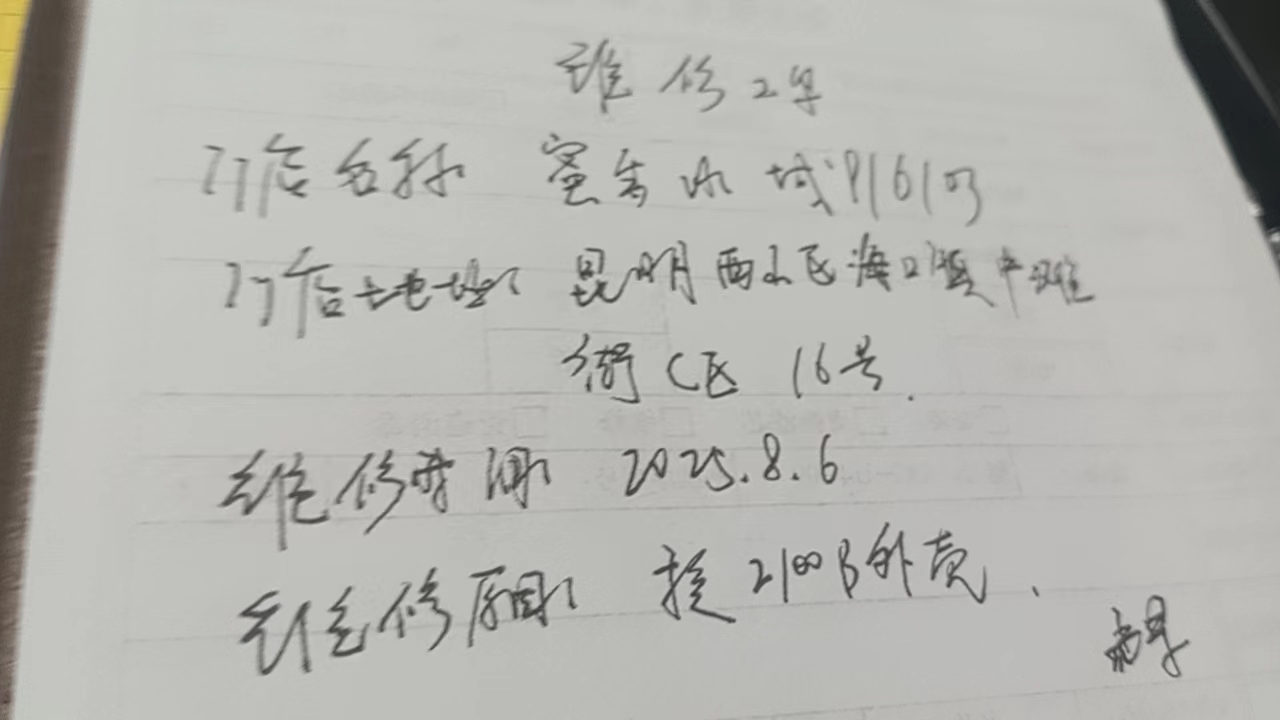 维修工单
门店名称 蜜雪冰城 916107
门店地址: 昆明西山区海口镇中滩
街C区 16号.
维修时间: 2025.8.6
维修原因: 换2100B外壳.